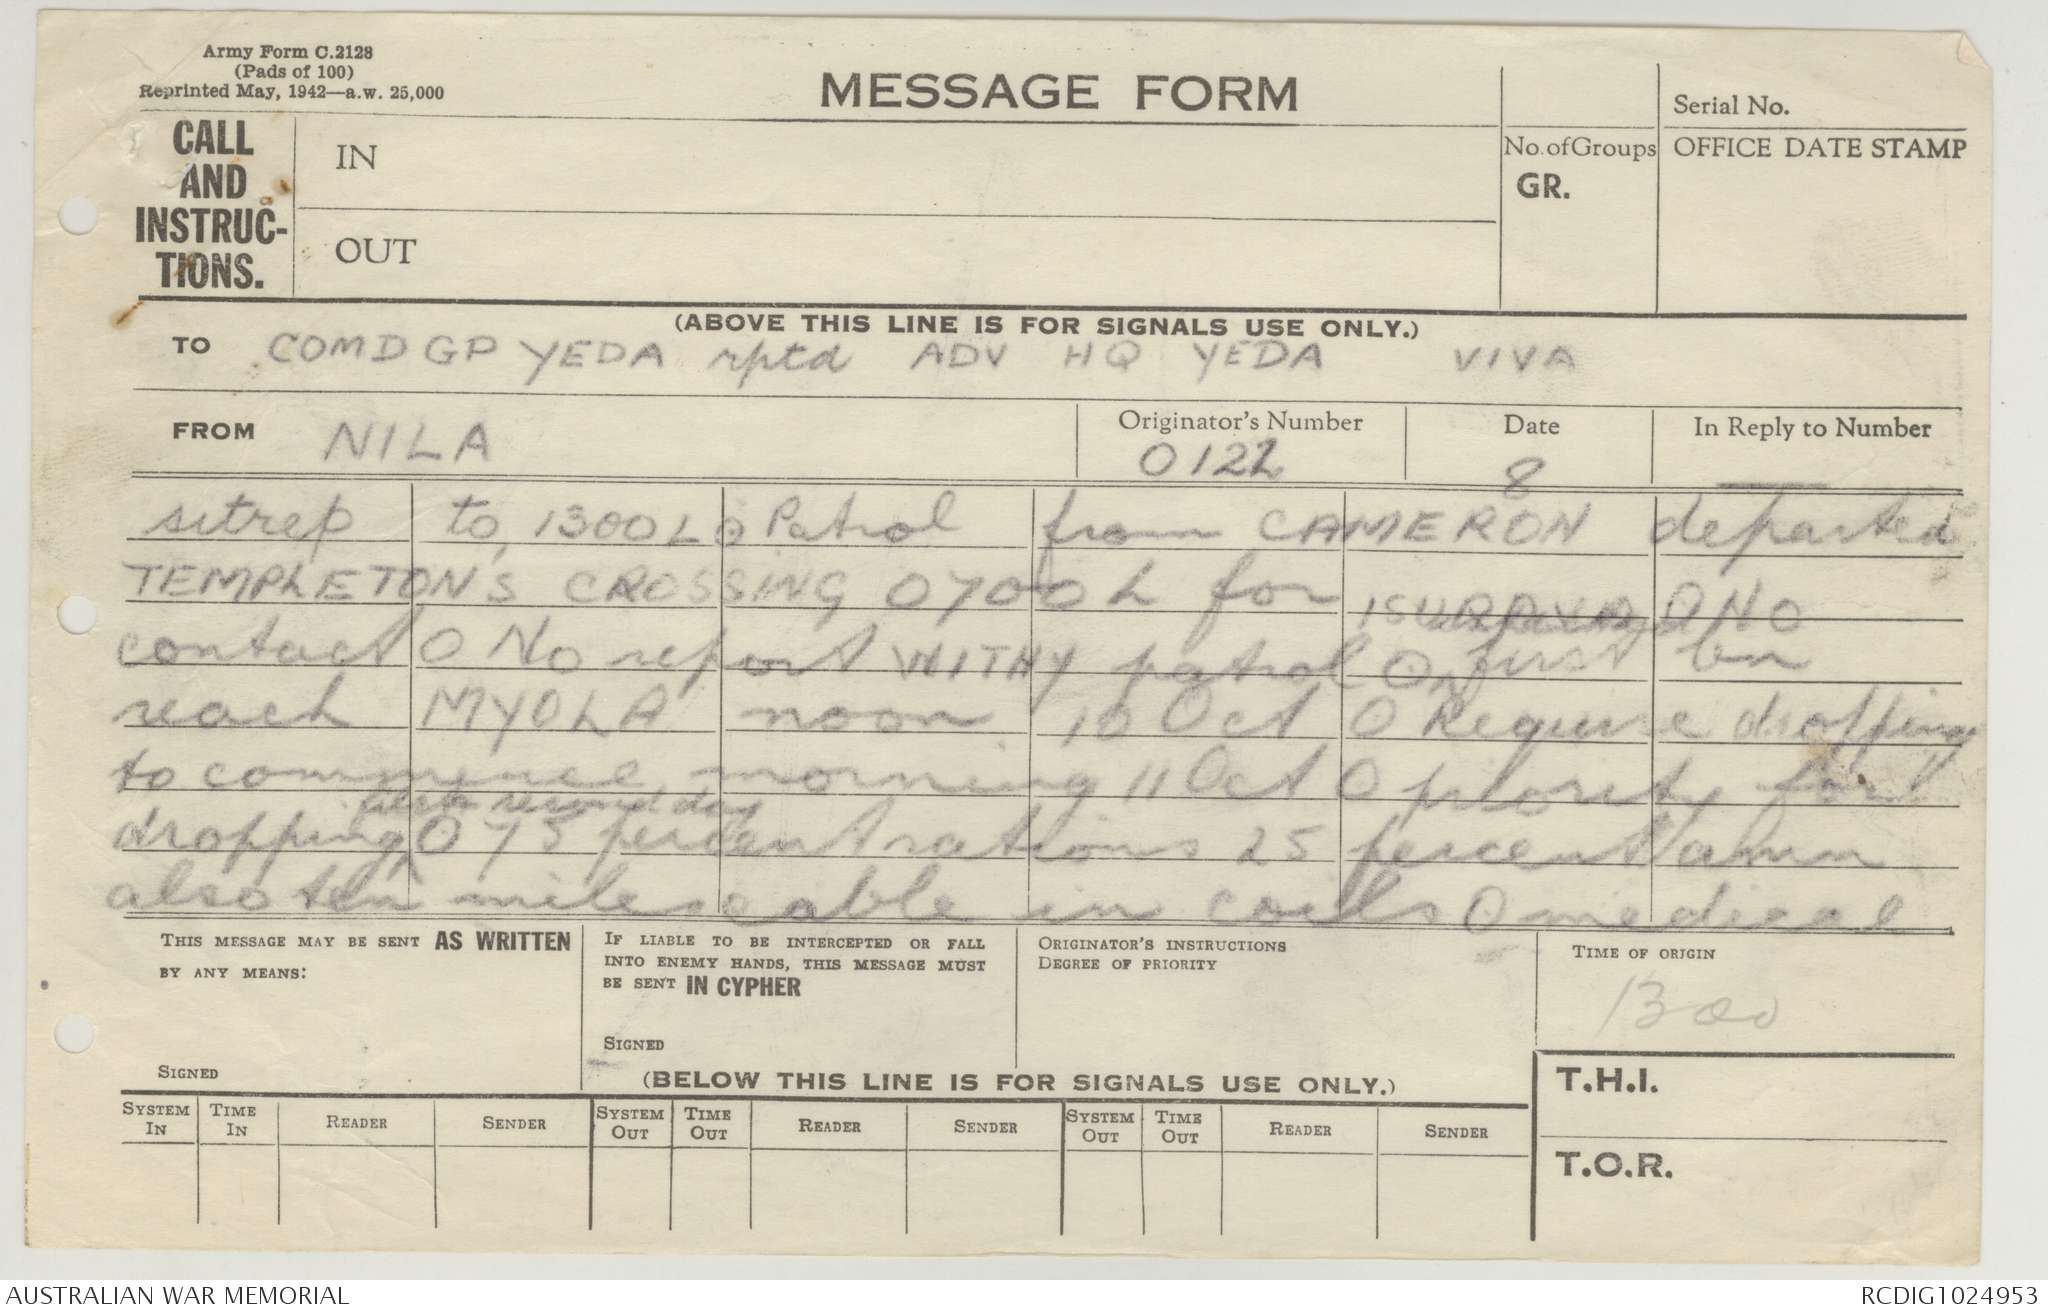 Army Form C.2128
(Pads of 100)
Reprinted May, 1942—a.w. 25,000
MESSAGE FORM
Serial No.
CALL
AND
INSTRUC-
TIONS.
IN
OUT
No. of Groups
GR.
OFFICE DATE STAMP
(ABOVE THIS LINE IS FOR SIGNALS USE ONLY.)
TO COMD GP YEDA rptd ADV HQ YEDA VIVA
FROM NILA
Originator's Number
0122
Date
8
In Reply to Number
—
sitrep to 1300L O Patrol from CAMERON departed
TEMPLETONS CROSSING 0700 L for ISURAVA O NO
contact O No report WITHY patrol O first bn
reach MYOLA noon 10 Oct O Require dropping
to commence morning 11 Oct O priority for
dropping second day O 75 percent rations 25 percent amn
also ten mile cable in coils O medical
THIS MESSAGE MAY BE SENT AS WRITTEN
BY ANY MEANS:
SIGNED
IF LIABLE TO BE INTERCEPTED OR FALL
INTO ENEMY HANDS, THIS MESSAGE MUST
BE SENT IN CYPHER
SIGNED
ORIGINATOR'S INSTRUCTIONS
DEGREE OF PRIORITY
TIME OF ORIGIN
1300
(BELOW THIS LINE IS FOR SIGNALS USE ONLY.)
T.H.I.
T.O.R.
SYSTEM IN TIME IN READER SENDER SYSTEM OUT TIME OUT READER SENDER SYSTEM OUT TIME OUT READER SENDER
AUSTRALIAN WAR MEMORIAL
RCDIG1024953